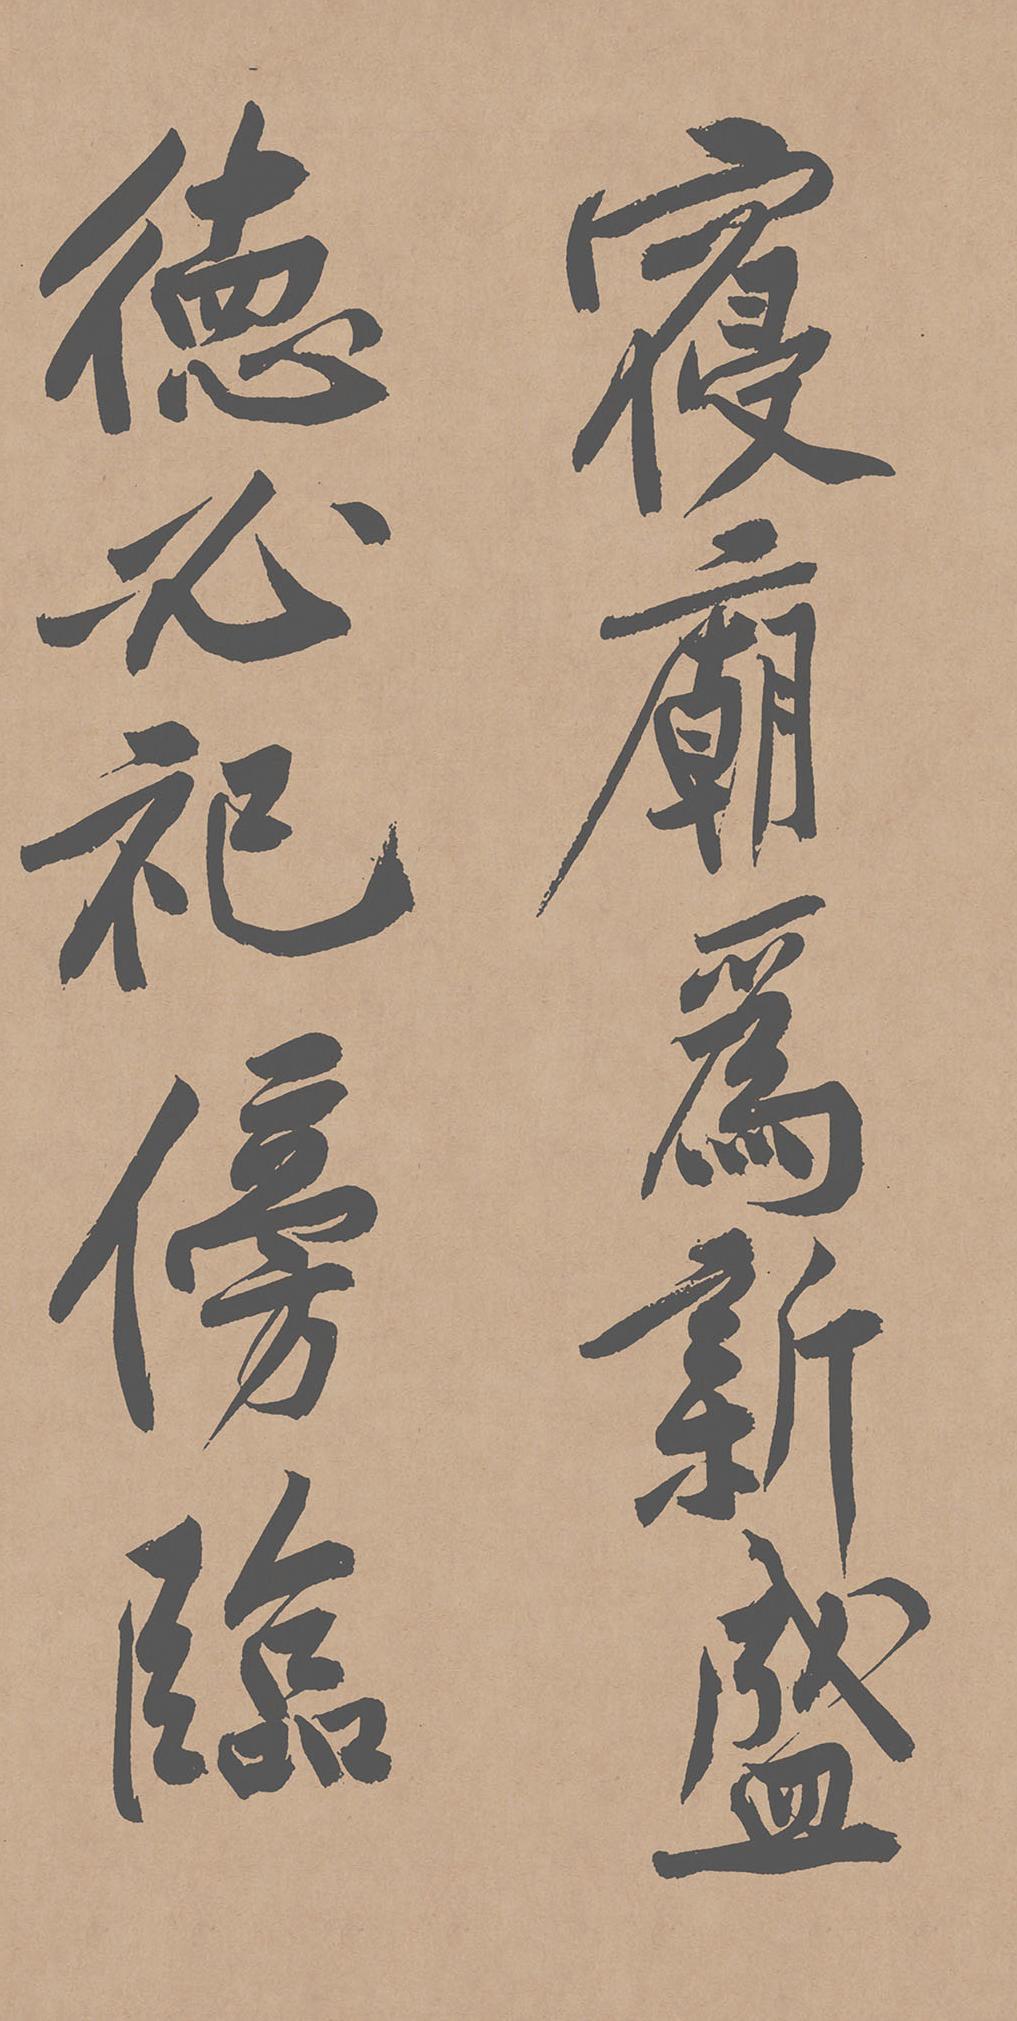 寢廟爲新盛
德必祀傍臨